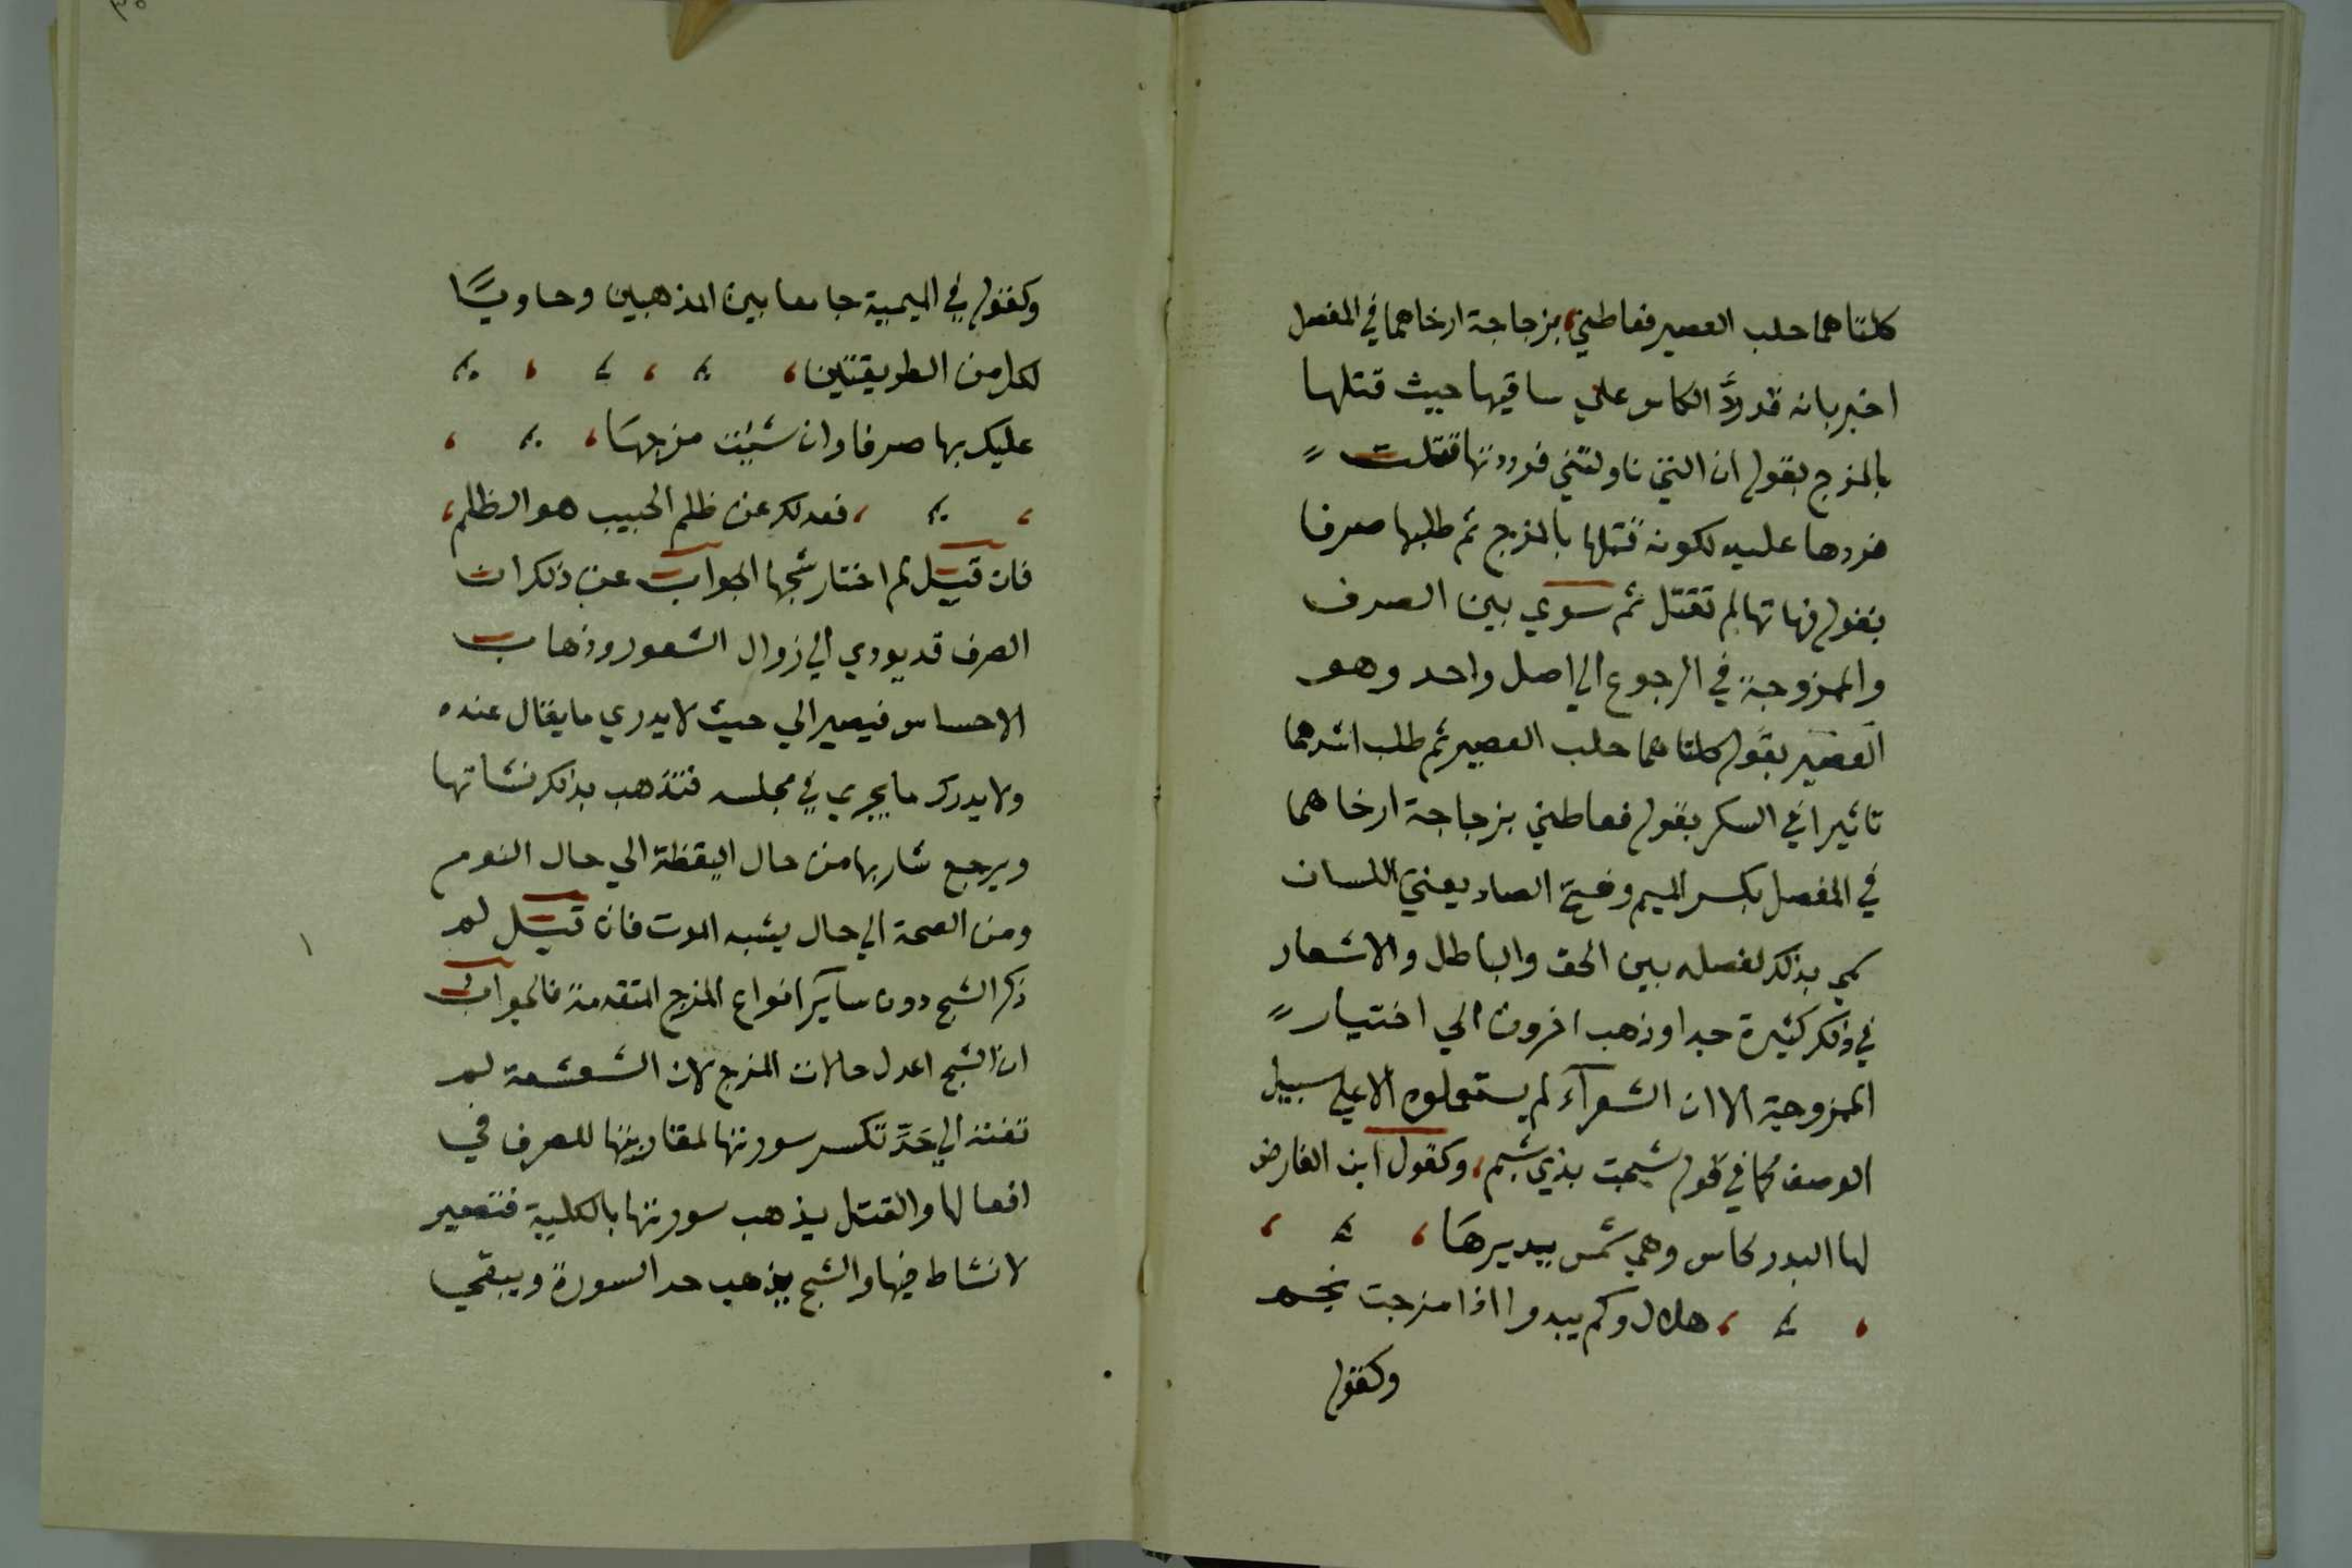 كلتاهما حلب العصير فعاطني، بزجاجة ارخاهما في المفصل
اخبر بانه قد ردَّ الكاس علي ساقيها حيث قتلها
بالمزج بقوله ان التي ناولتني فرددتها قتلت
فردها عليه لكونه قتلها بالمزج ثم طلبها صرفا
بقوله فهاتها لم تقتل ثم سوي بين الصرف
والممزوجة في الرجوع الي اصل واحد وهو
العصير بقوله كلتاهما حلب العصير ثم طلب اشدهما
تاثيرا في السكر بقوله فعاطني بزجاجة ارخاهما
في المفصل بكسر الميم وفتح الصاد يعني اللسان
سمي بذلك لفصله بين الحق والباطل والاشعار
في ذلك كثيرة جدا وذهب اخرون الي اختيار
الممزوجة الا ان الشعرآء لم يستعملوه الا علي سبيل
الوصف كما في قوله شجت بذي شبم، وكقول ابن الفارض
لها البدر كاس وهي شمس يديرها،
، هلال وكم يبدوا اذا مزجت نجم
وكقوله
وكقوله في الميمية جامعا بين المذهبين وحاويًا
لكل من الطريقتين،
عليك بها صرفا وان شئت مزجها،
، فعدلك عن ظلم الحبيب هو الظلم،
فان قيل لم اختار شجها الجواب عن ذلك ان
الصرف قد يودي الي زوال الشعور وذهاب
الاحساس فيصير الي حيث لا يدري ما يقال عنده
ولا يدرك ما يجري في مجلسه فتذهب بذلك نشاتها
ويرجع شاربها من حال اليقظة الي حال النوم
ومن الصحة الي حال يشبه الموت فان قيل لم
ذكر الشج دون سآير انواع المزج المتقدمة فالجواب
ان الشج اعدل حالات المزج لان الشعشعة لم
تفته الي حَدٍّ تكسر سورتها لمقاربتها للصرف في
افعالها والقتل يذهب سورتها بالكلية فتصير
لا نشاط فيها والشج يذهب حد السورة ويبقي